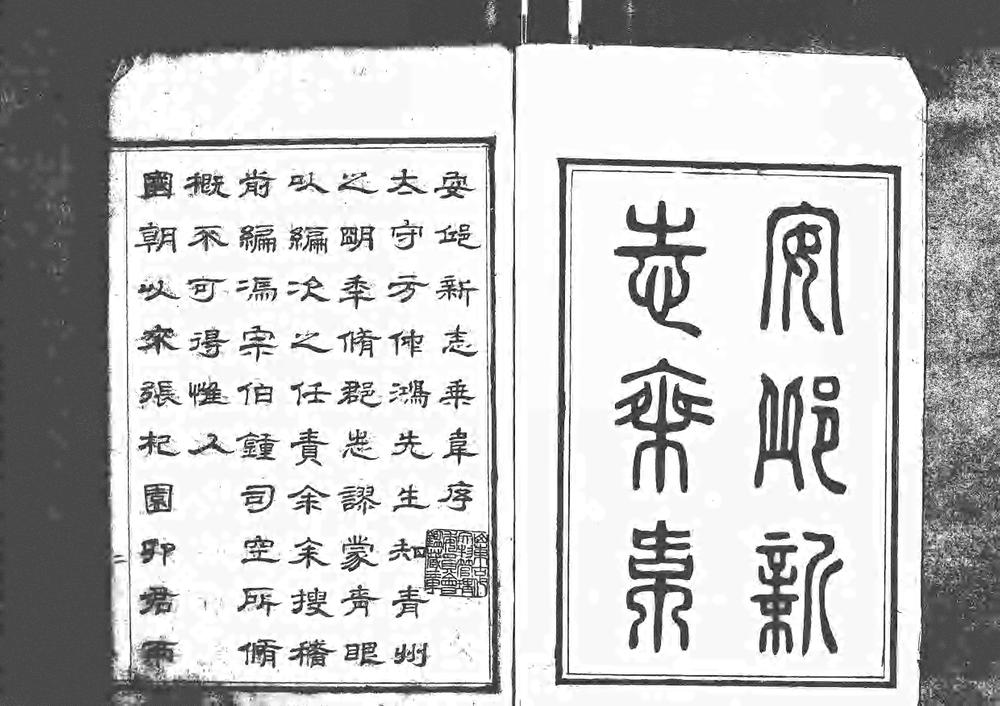 安邱新
志乘韋
安邱新志乘韋序
太守方鴻先生知青州
之明季脩郡志謬蒙青眼
以編次之任責余余搜稽
前編馮宗伯鍾司空所脩
概不可得惟入
國朝以來張杞園卯君兩